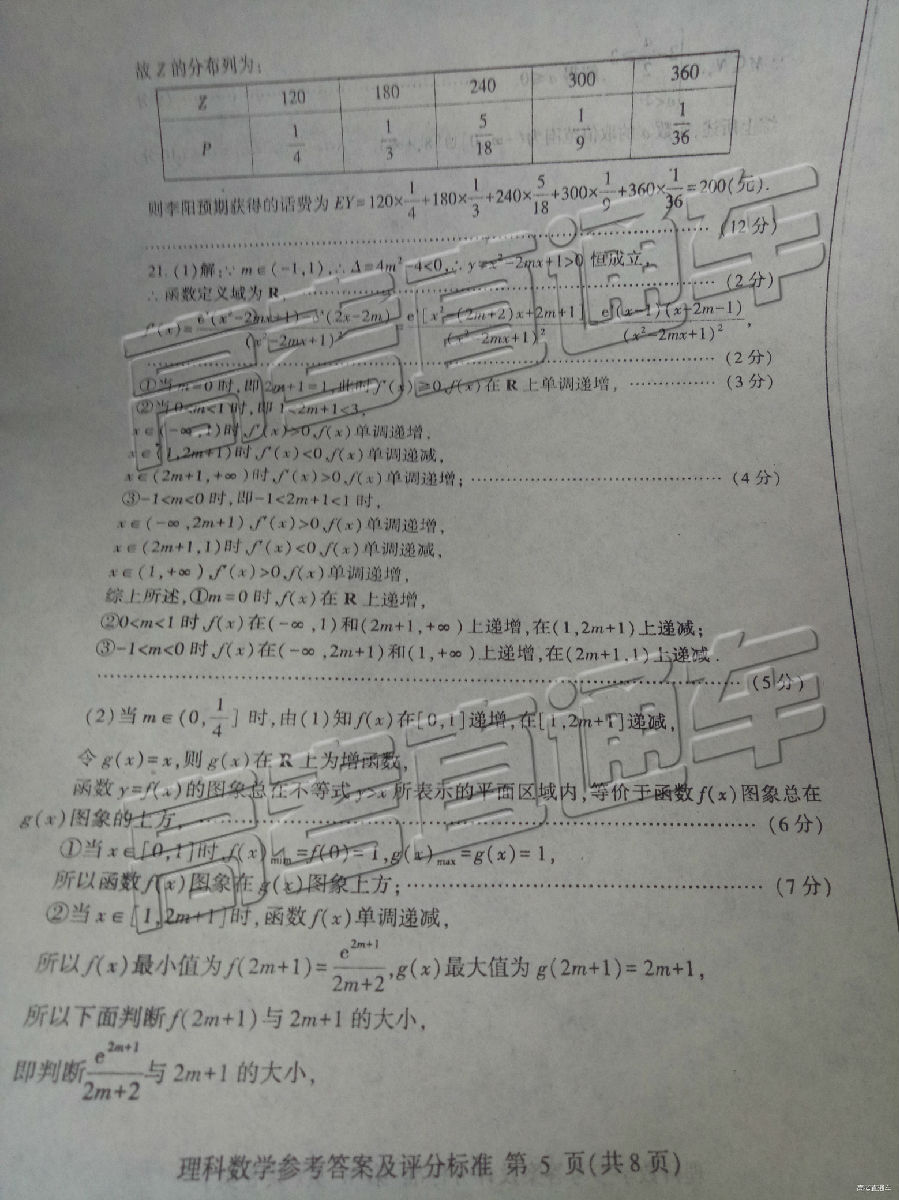 故Z的分布列为:
Z 120 180 240 300 360
P 1/4 1/3 5/18 1/9 1/36
则李阳预期获得的话费为 EY=120×1/4+180×1/3+240×5/18+300×1/9+360×1/36=200(元).
(12分)
21.(1)解:∵m∈(-1,1),∴Δ=4m²-4<0,∴y=x²-2mx+1>0 恒成立,
∴函数定义域为R, (2分)
(x²-2mx+1)² (x²-2mx+1)² (x²-2mx+1)²
(2分)
①当m=0时,即2m+1=1,此时f'(x)≥0,f(x)在R上单调递增, (3分)
②当0<m<1时,即1<2m+1<3,
x∈(-∞,1)时,f'(x)>0,f(x)单调递增,
x∈(1,2m+1)时,f'(x)<0,f(x)单调递减,
x∈(2m+1,+∞)时,f'(x)>0,f(x)单调递增; (4分)
③-1<m<0时,即-1<2m+1<1时,
x∈(-∞,2m+1),f'(x)>0,f(x)单调递增,
x∈(2m+1,1)时,f'(x)<0,f(x)单调递减,
x∈(1,+∞),f'(x)>0,f(x)单调递增,
综上所述,①m=0时,f(x)在R上递增,
②0<m<1时,f(x)在(-∞,1)和(2m+1,+∞)上递增,在(1,2m+1)上递减;
③-1<m<0时,f(x)在(-∞,2m+1)和(1,+∞)上递增,在(2m+1,1)上递减.
(5分)
(2)当m∈(0,1/4]时,由(1)知f(x)在[0,1]递增,在[1,2m+1]递减,
令g(x)=x,则g(x)在R上为增函数,
函数y=f(x)的图象总在不等式y>x所表示的平面区域内,等价于函数f(x)图象总在
g(x)图象的上方, (6分)
①当x∈[0,1]时,f(x)min=f(0)=1,g(x)max=g(x)=1,
所以函数f(x)图象在g(x)图象上方; (7分)
②当x∈[1,2m+1]时,函数f(x)单调递减,
所以f(x)最小值为f(2m+1)=e^(2m+1)/(2m+2),g(x)最大值为g(2m+1)=2m+1,
所以下面判断f(2m+1)与2m+1的大小,
即判断e^(2m+1)/(2m+2)与2m+1的大小,
理科数学参考答案及评分标准 第 5 页(共8页)
高考直通车
高考直通车